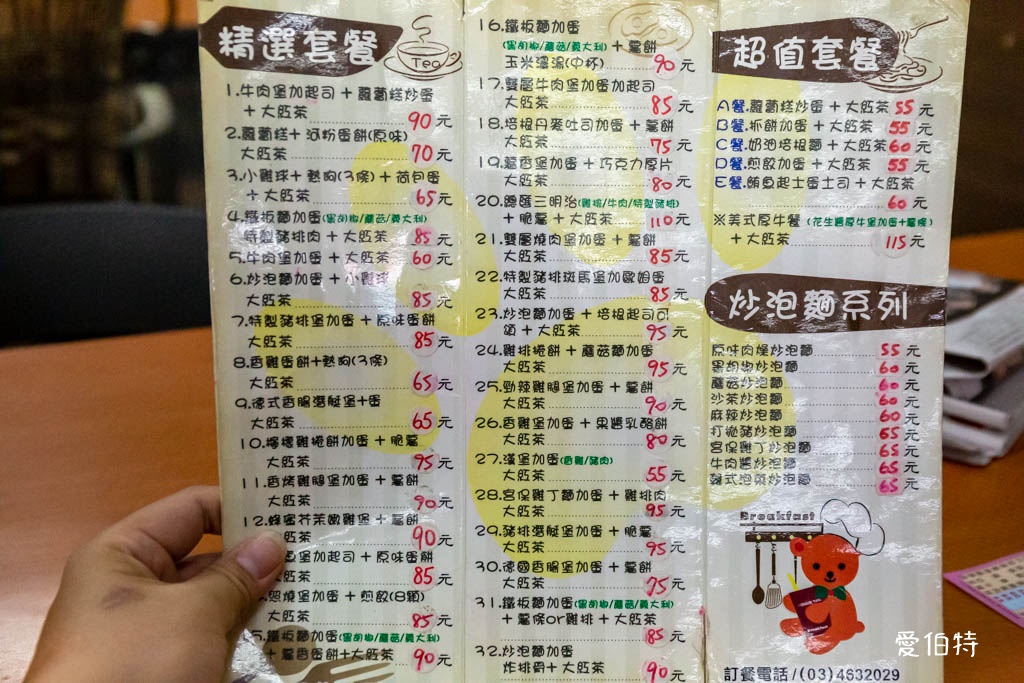 精選套餐
Tea
1.牛肉堡加起司＋蘿蔔糕炒蛋
大紅茶 90元
2.蘿蔔糕＋河粉蛋餅(原味)
大紅茶 70元
3.小雞球＋熱狗(3條)＋荷包蛋
＋大紅茶 65元
4.鐵板麵加蛋(黑胡椒/蘑菇/義大利)
特製豬排肉＋大紅茶 85元
5.牛肉堡加蛋＋大紅茶 60元
6.炒泡麵加蛋＋小雞球
大紅茶 85元
7.特製豬排堡加蛋＋原味蛋餅
大紅茶 85元
8.香雞蛋餅+熱狗(3條)
大紅茶 65元
9.德式香腸潛艇堡+蛋
大紅茶 65元
10.檸檬雞捲餅加蛋＋脆薯
大紅茶 95元
11.香烤雞腿堡加蛋＋薯餅
大紅茶 90元
12.蜂蜜芥茉嫩雞堡＋薯餅
紅茶 90元
魚堡加起司＋原味蛋餅
大紅茶 85元
照燒堡加蛋＋煎餃(8顆)
大紅茶 85元
5.鐵板麵加蛋(黑胡椒/蘑菇/義大利)
＋蔥香蛋餅+大紅茶 90元
16.鐵板麵加蛋
(黑胡椒/蘑菇/義大利)＋薯餅
玉米濃湯(中杯) 90元
17.雙層牛肉堡加蛋加起司
大紅茶 85元
18.培根丹麥吐司加蛋＋薯餅
大紅茶 75元
19.蔥香堡加蛋＋巧克力厚片
大紅茶 80元
20.總匯三明治(雞排/牛肉/特製豬排)
＋脆薯＋大紅茶 110元
21.雙層燒肉堡加蛋＋薯餅
大紅茶 85元
22.特製豬排斑馬堡加歐姆蛋
大紅茶 85元
23.炒泡麵加蛋＋培根起司可
頌＋大紅茶 95元
24.雞排捲餅＋蘑菇麵加蛋
大紅茶 95元
25.勁辣雞腿堡加蛋＋薯餅
大紅茶 90元
26.香雞堡加蛋＋果醬乳酪餅
大紅茶 80元
27.漢堡加蛋(香雞/豬肉)
大紅茶 55元
28.宮保雞丁麵加蛋＋雞排肉
大紅茶 95元
29.豬排潛艇堡加蛋＋脆薯
大紅茶 95元
30.德國香腸堡加蛋＋薯餅
大紅茶 75元
31.鐵板麵加蛋(黑胡椒/蘑菇/義大利)
＋薯條or雞排＋大紅茶
85元
32.炒泡麵加蛋
炸排骨＋大紅茶 90元
超值套餐
A餐.蘿蔔糕炒蛋＋大紅茶 55元
B餐.抓餅加蛋＋大紅茶 55元
C餐.奶油培根麵＋大紅茶 60元
D餐.煎餃加蛋＋大紅茶 55元
E餐.鮪魚起士蛋土司＋大紅茶
60元
※美式厚牛餐(花生醬厚牛堡加蛋+薯條)
＋大紅茶 115元
炒泡麵系列
原味肉燥炒泡麵 55元
黑胡椒炒泡麵 60元
蘑菇炒泡麵 60元
沙茶炒泡麵 60元
麻辣炒泡麵 60元
打拋豬炒泡麵 65元
宮保雞丁炒泡麵 65元
牛肉醬炒泡麵 65元
韓式泡菜炒泡麵 65元
Breakfast
訂餐電話/(03)4632029
愛伯特